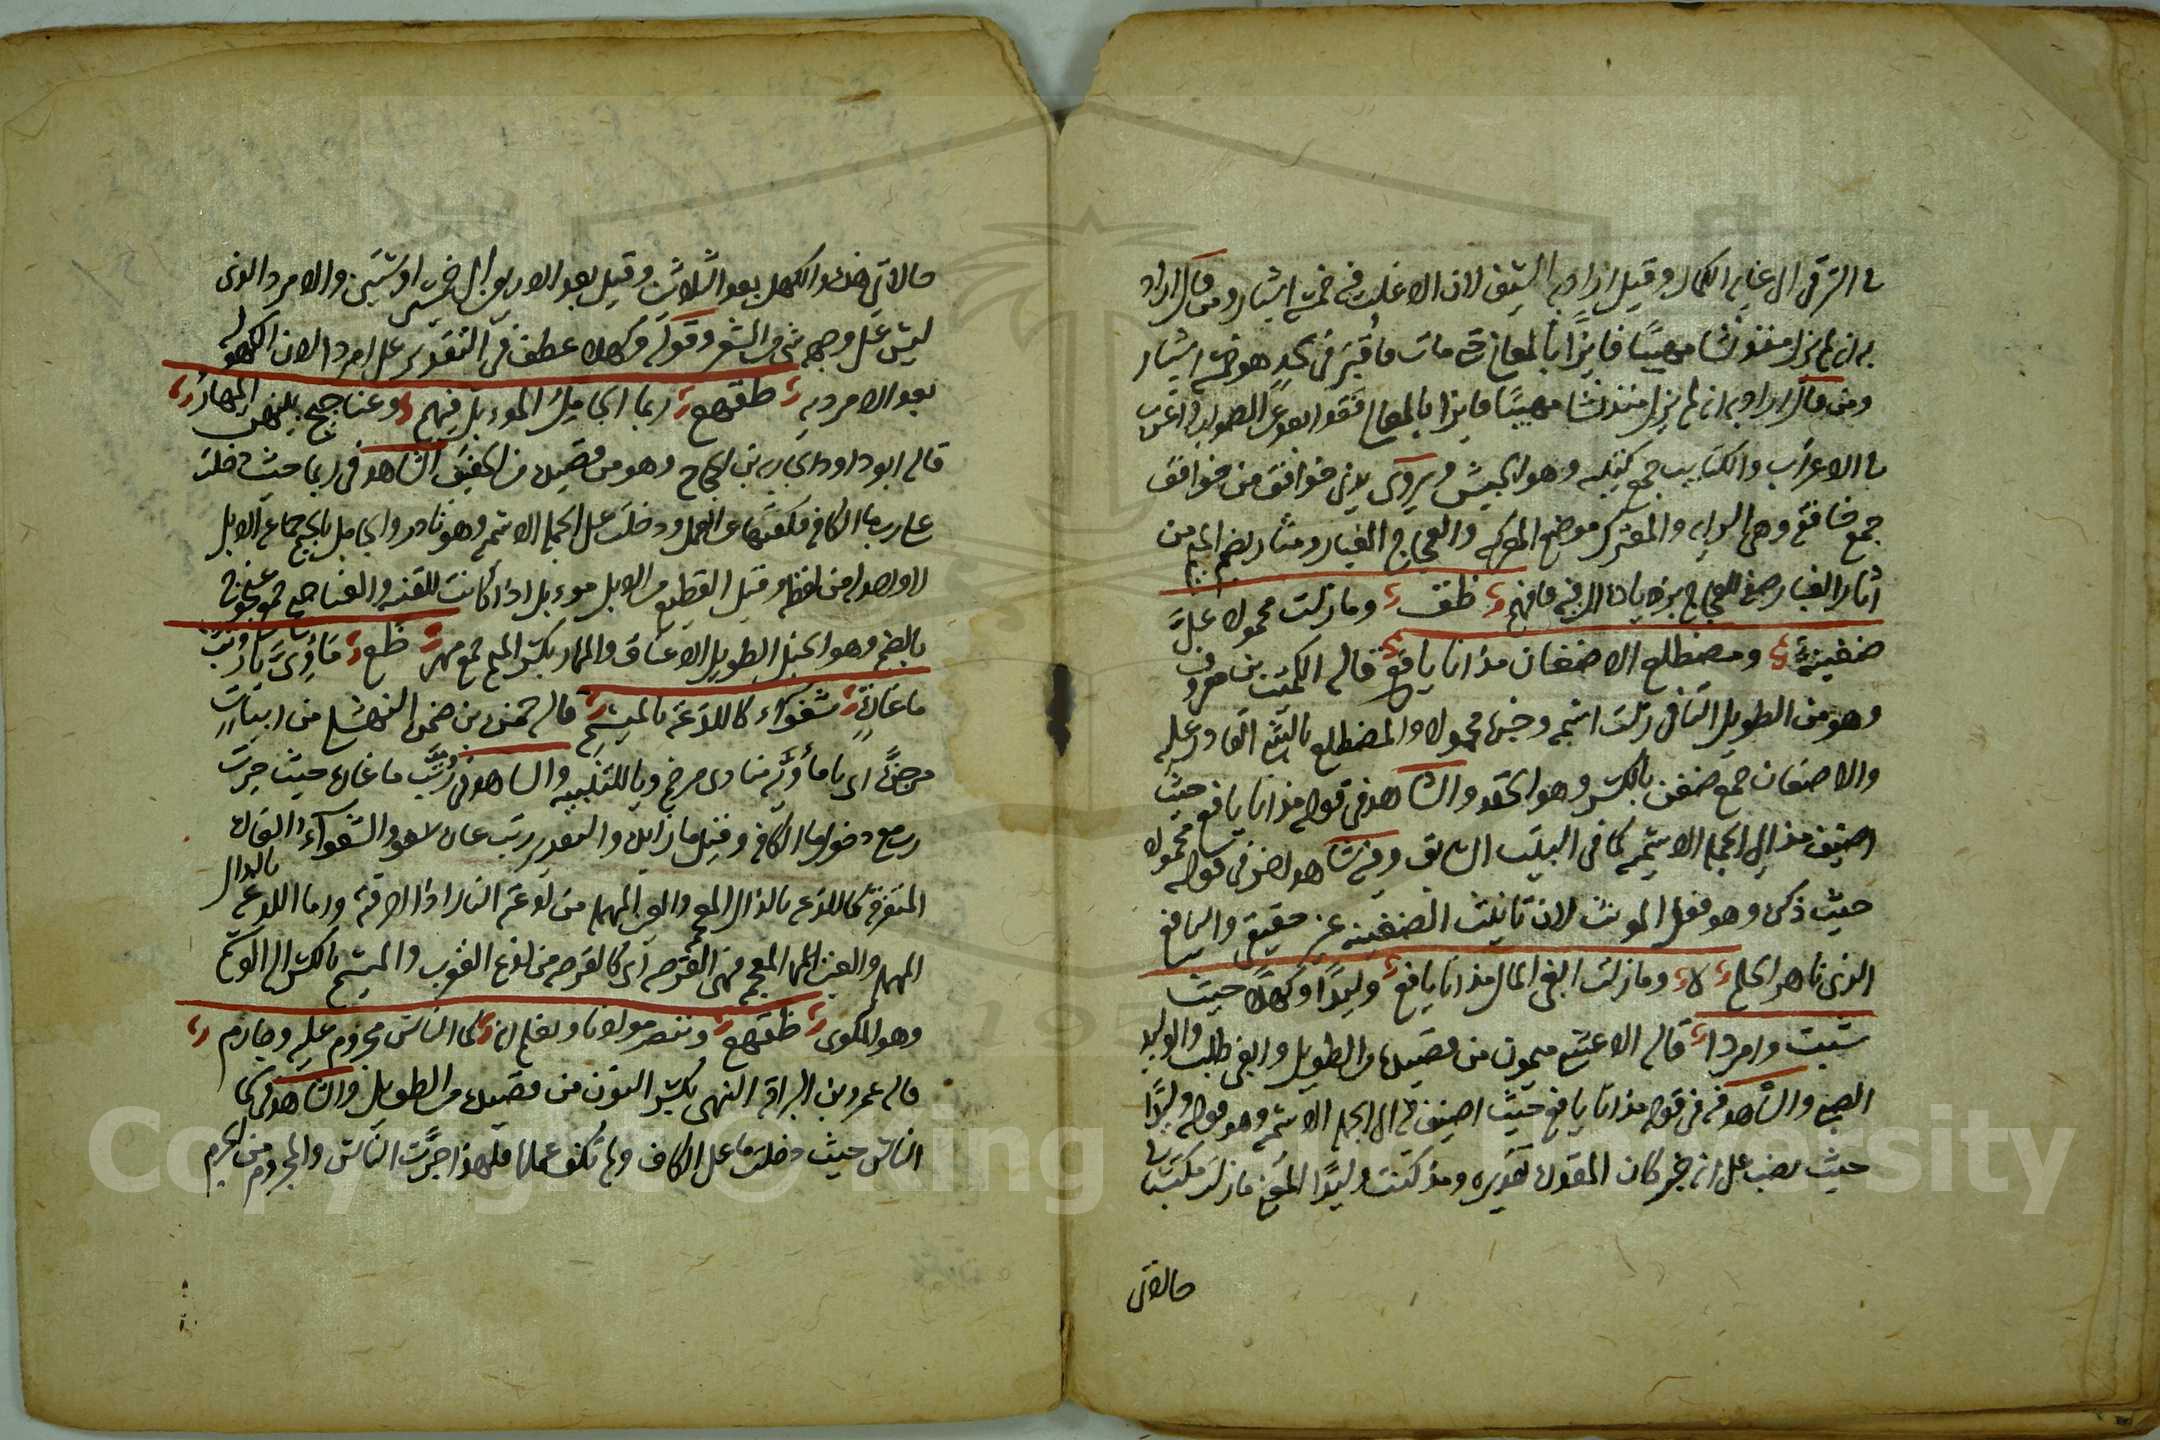 في الترقي الى غاية الكمال وقيل اراد به السيف لان الاغلب فيه خمسة اشبار ومن قال اراد
به انه لم يزل منذ نشا مهيبا فايزا بالمعالي حتى مات فاقبر في لحد هو خمسة اشبار
ومن قال اراد به انه لم يزل منذ نشا مهيبا فايزا بالمعالي فقد ابعد عن الصواب واغرب
في الاعراب والكتايب جمع كتيبة وهو الجيش ويروى يدني خوافق من خوافق
جمع خافقة وهي الراية والمعترك موضع المعركة والعجاج الغبار ومثار بضم الميم من
اثار الغبار صفة للعجاج بزيادة ال فيه فافهم ظقف وما زلت محمولا علي
ضغينة ومضطلع الاضغان مذ انا يافع قاله الكميت بن معروف
وهو من الطويل التا في زلت اسمه وخبره محمولا والمضطلع بالشي القادر عليه
والاضغان جمع ضغن بالكسر وهو الحقد والشاهد في قوله مذ انا يافع حيث
اضيف مذ الى الجملة الاسمية كما في البيت السابق وفيه شاهد اخر في قوله محمولا
حيث ذكره وهو فعل المونث لان تانيث الضغينة غير حقيقي واليافع
الذي ناهز الحلم لا وما زلت ابغي المال مذ انا يافع وليدا وكهلا حيث
شبت وامردا قاله الاعشى ميمون من قصيدة من الطويل وابغي طلب والوليد
الصبي والشاهد فيه في قوله مذ انا يافع حيث اضيف فيه الى الجملة الاسمية وهو قوله وليدا
حيث نصب على انه خبر كان المقدرة تقديره ومذ كنت وليدا المعنى ما زلت مكتسبا في
حالاتي
حالاتي هذه والكهل بعد الثلاثين وقيل بعد الاربعين الى خمسين او ستين والامرد الذي
ليس على وجهه شي من الشعر وقوله وكهلا عطف في التقدير على امردا لان الكهولة
بعد الامردية ظقهع ربما الجامل الموبل فيهم وعناجيج بينهن المهار
قاله ابو داود جارية بن الحجاج وهو من قصيدة من الخفيف الشاهد في ربما حيث دخلت
على رب ما الكافة فكفتها عن العمل ودخلت على الجملة الاسمية وهو نادر والجامل بالجيم جماعة الابل
لا واحد له من لفظه وقيل القطيع من الابل موبل اذا كانت للقنية والعناجيج جمع عنجوج
بالضم وهو الخيل الطويل الاعناق والمهار بكسر الميم جمع مهر ظع ماوي يا ربت
ما غارة شعواء كاللذعة بالميسم قاله ضمرة بن ضمرة النهشلي من ابيات
مرخم اي يا ماوية منادى مرخم ويا للتنبيه والشاهد في ربت ما غارة حيث جرت
رب مع دخول ما الكافة وقيل ما زايدة والتقدير ربت غارة والشعواء الغارة
المتفرقة كاللذعة بالذال المعجمة والعين المهملة من لذعته النار اذا احرقته واما اللدغة بالدال
المهملة والغين المعجمة فهي القرصة اي كالقرصة من لدغ العقرب والميسم بالكسر الة الوسم
وهو المكوى ظقهع وننصر مولانا ونعلم انه كما الناس مجروم عليه وجارم
قاله عمرو بن البراقة النهمي بكسر النون من قصيدة من الطويل والشاهد في كما
الناس حيث دخلت ما على الكاف ولم تكفه عملها فلهذا جرت الناس والمجروم من الجرم
Copyright © King Saud University
1957